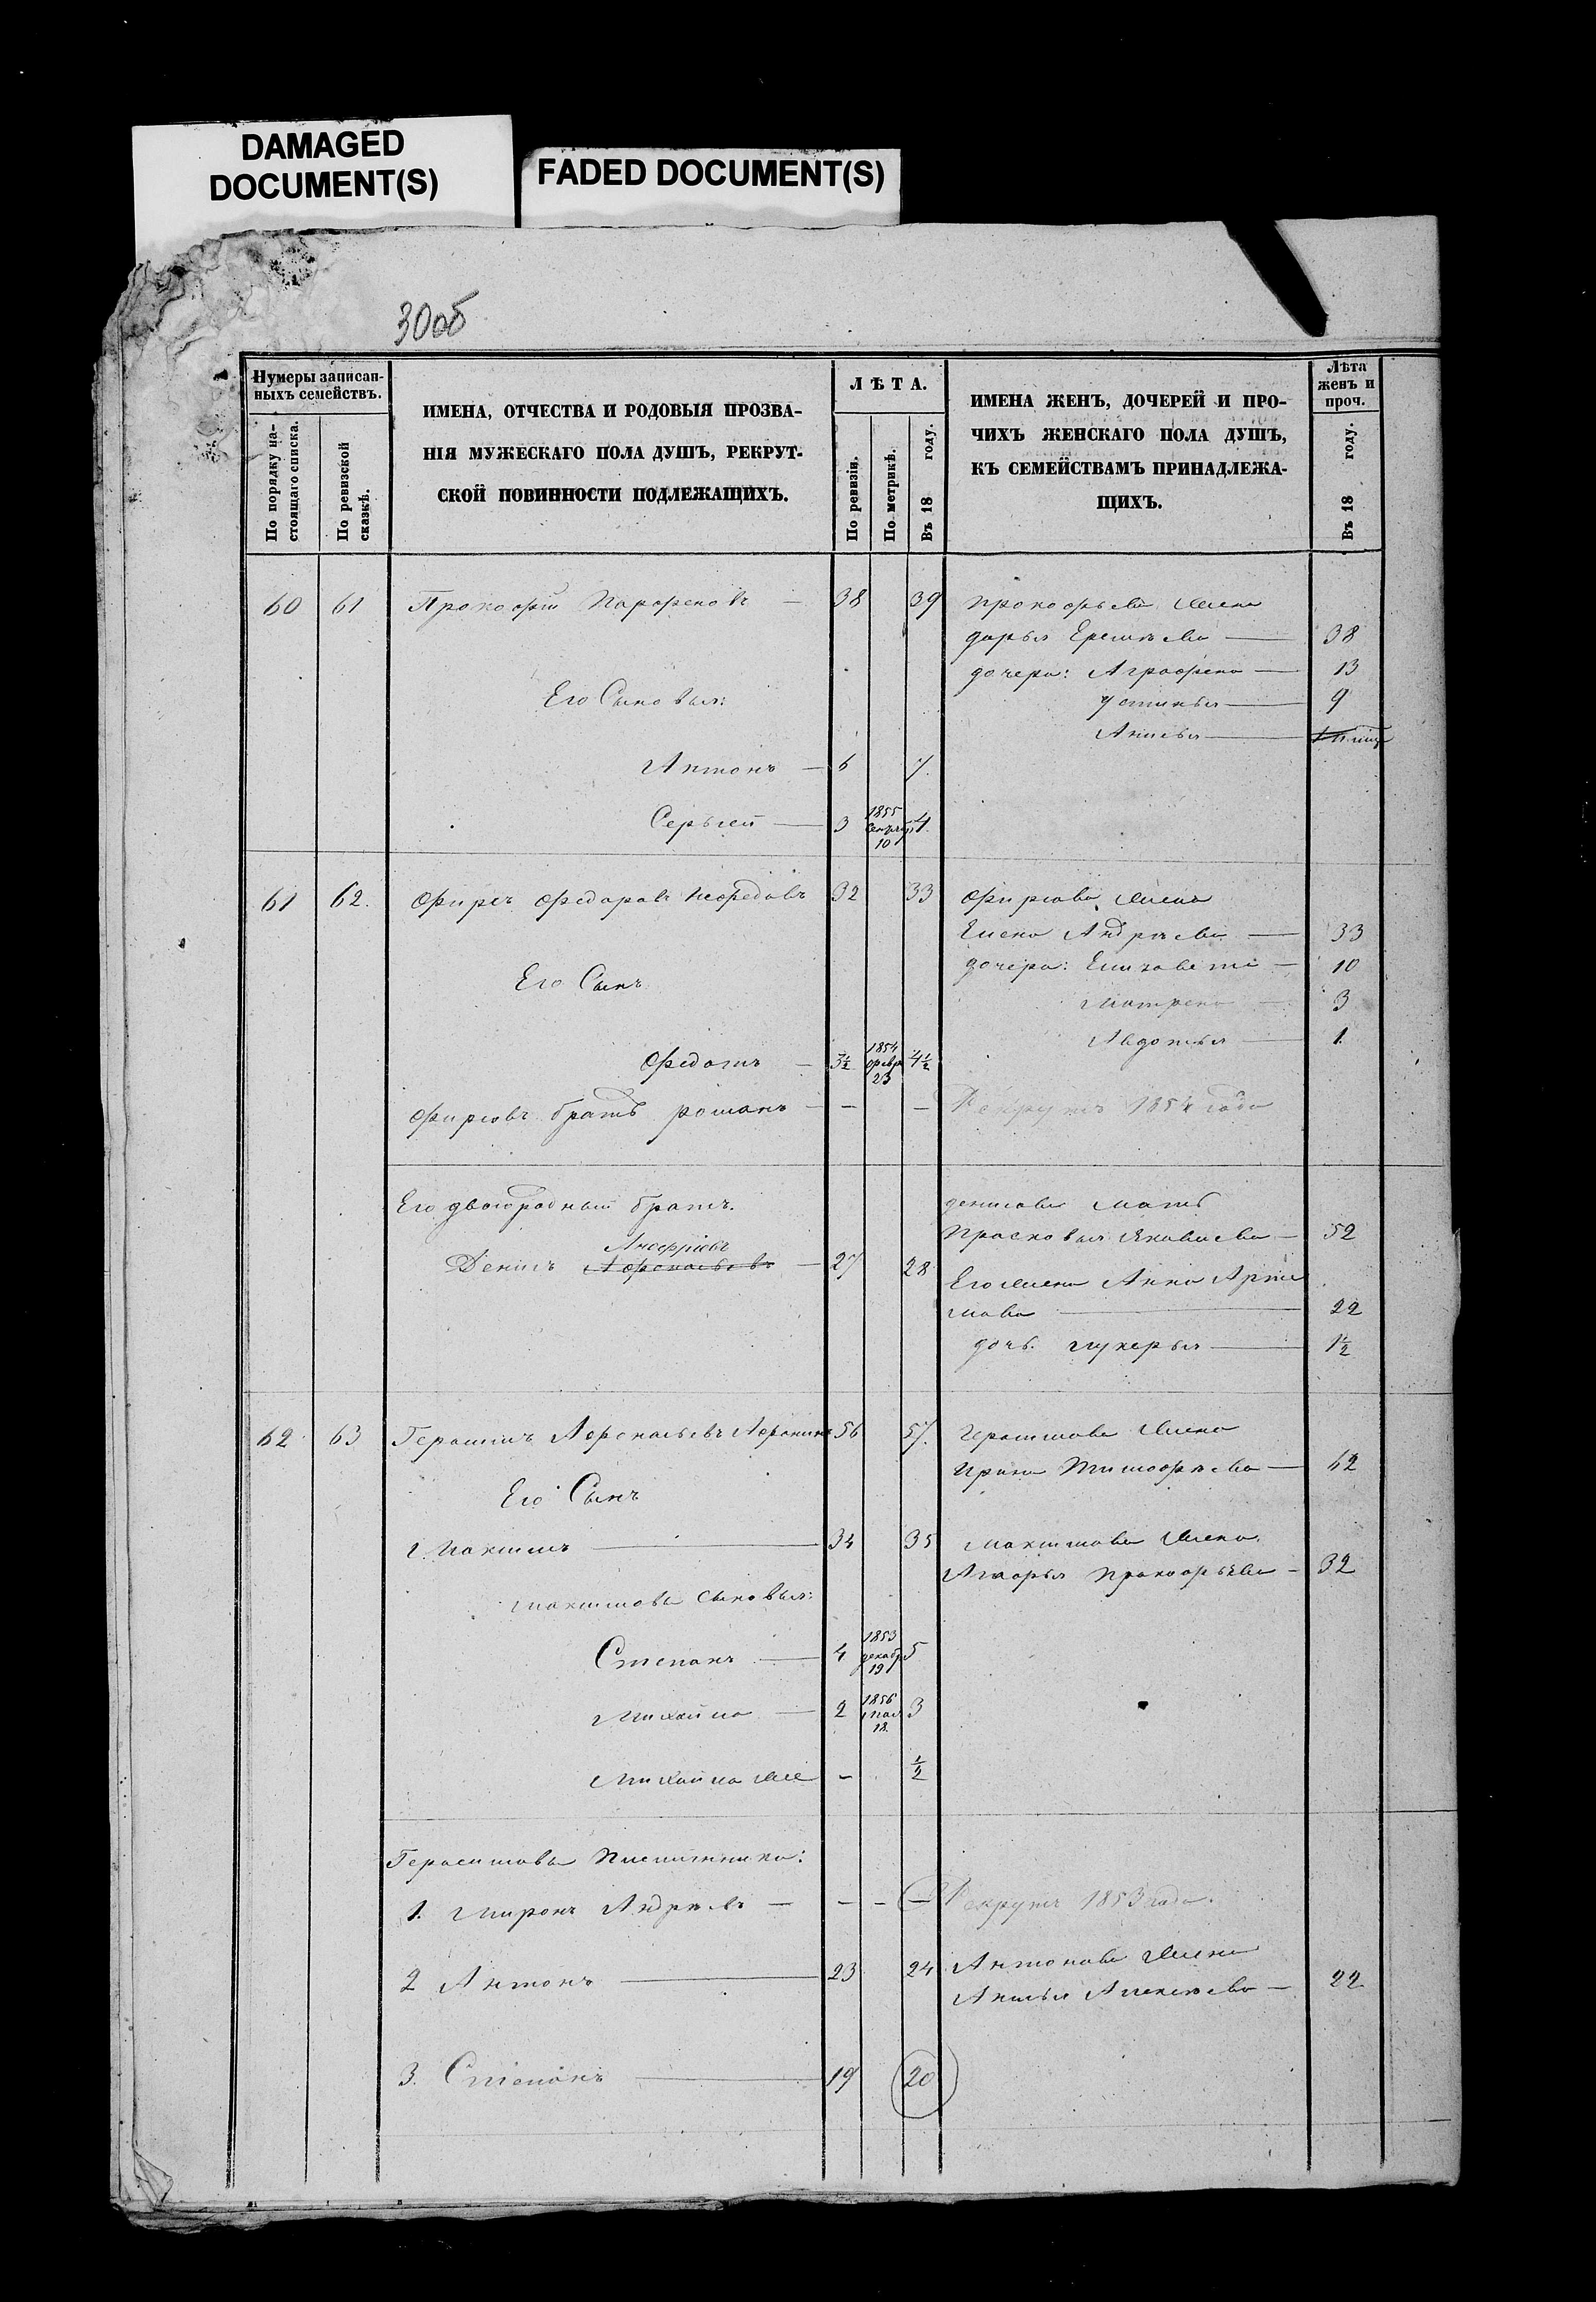 DAMAGED
DOCUMENT(S)
FADED DOCUMENT(S)
30об
Нумеры записан-
ныхъ семействъ.
По порядку на-
стоящаго списка.
По ревизской
сказкѣ.
ИМЕНА, ОТЧЕСТВА И РОДОВЫЯ ПРОЗВА-
НІЯ МУЖЕСКАГО ПОЛА ДУШЪ, РЕКРУТ-
СКОЙ ПОВИННОСТИ ПОДЛЕЖАЩИХЪ.
ЛѢТА.
По ревизіи.
По метрикѣ.
Въ 18 году.
ИМЕНА ЖЕНЪ, ДОЧЕРЕЙ И ПРО-
ЧИХЪ ЖЕНСКАГО ПОЛА ДУШЪ,
КЪ СЕМЕЙСТВАМЪ ПРИНАДЛЕЖА-
ЩИХЪ.
Лѣта
женъ и
проч.
Въ 18 году.
60 61 Прокофій Парфеновъ — 38 39 Прокофьева жена
дарья Еремѣева — 38
дочери: Аграфена — 13
Его Сыновья: Устинья — 9
Анисья —
Антонъ — 6 7.
Сергей — 3 1855 4.
10
61 62. Фирсъ Федоровъ 32 33 Фирсова жена
Елена Андрѣева — 33
дочери: Елизавета — 10
Его Сынъ
Матрена — 3
Авдотья — 1.
Федотъ — 3½ 1854 февр 23 4½
Фирсовъ братъ романъ — — — Рекрутъ 1854 года
Его двоюродный братъ. денисова мать
Прасковья Яковлева — 52
Анофріевъ
Денисъ Афонасьевъ — 27 28
Его жена Анна Арте
мова — 22
дочь. Лукерья — 1½
62 63 Герасимъ Афонасьевъ Афонинъ 56 57. Герасимова жена
Ирина Тимофѣева — 62
Его Сынъ
Максимъ — 34 35 Максимова жена
Марья Прокофьева — 32
Максимова Сыновья:
Степанъ — 4 1853 декабр 19 5
Михайла — 2 1856 мая 18. 3
Михайла же — ½
Герасимова Племянники:
1. Миронъ Андрѣевъ — — — — Рекрутъ 1853 года.
2 Антонъ — 23 24 Антонова жена
Анисья Алексѣева — 22
3. Степанъ — 19 20